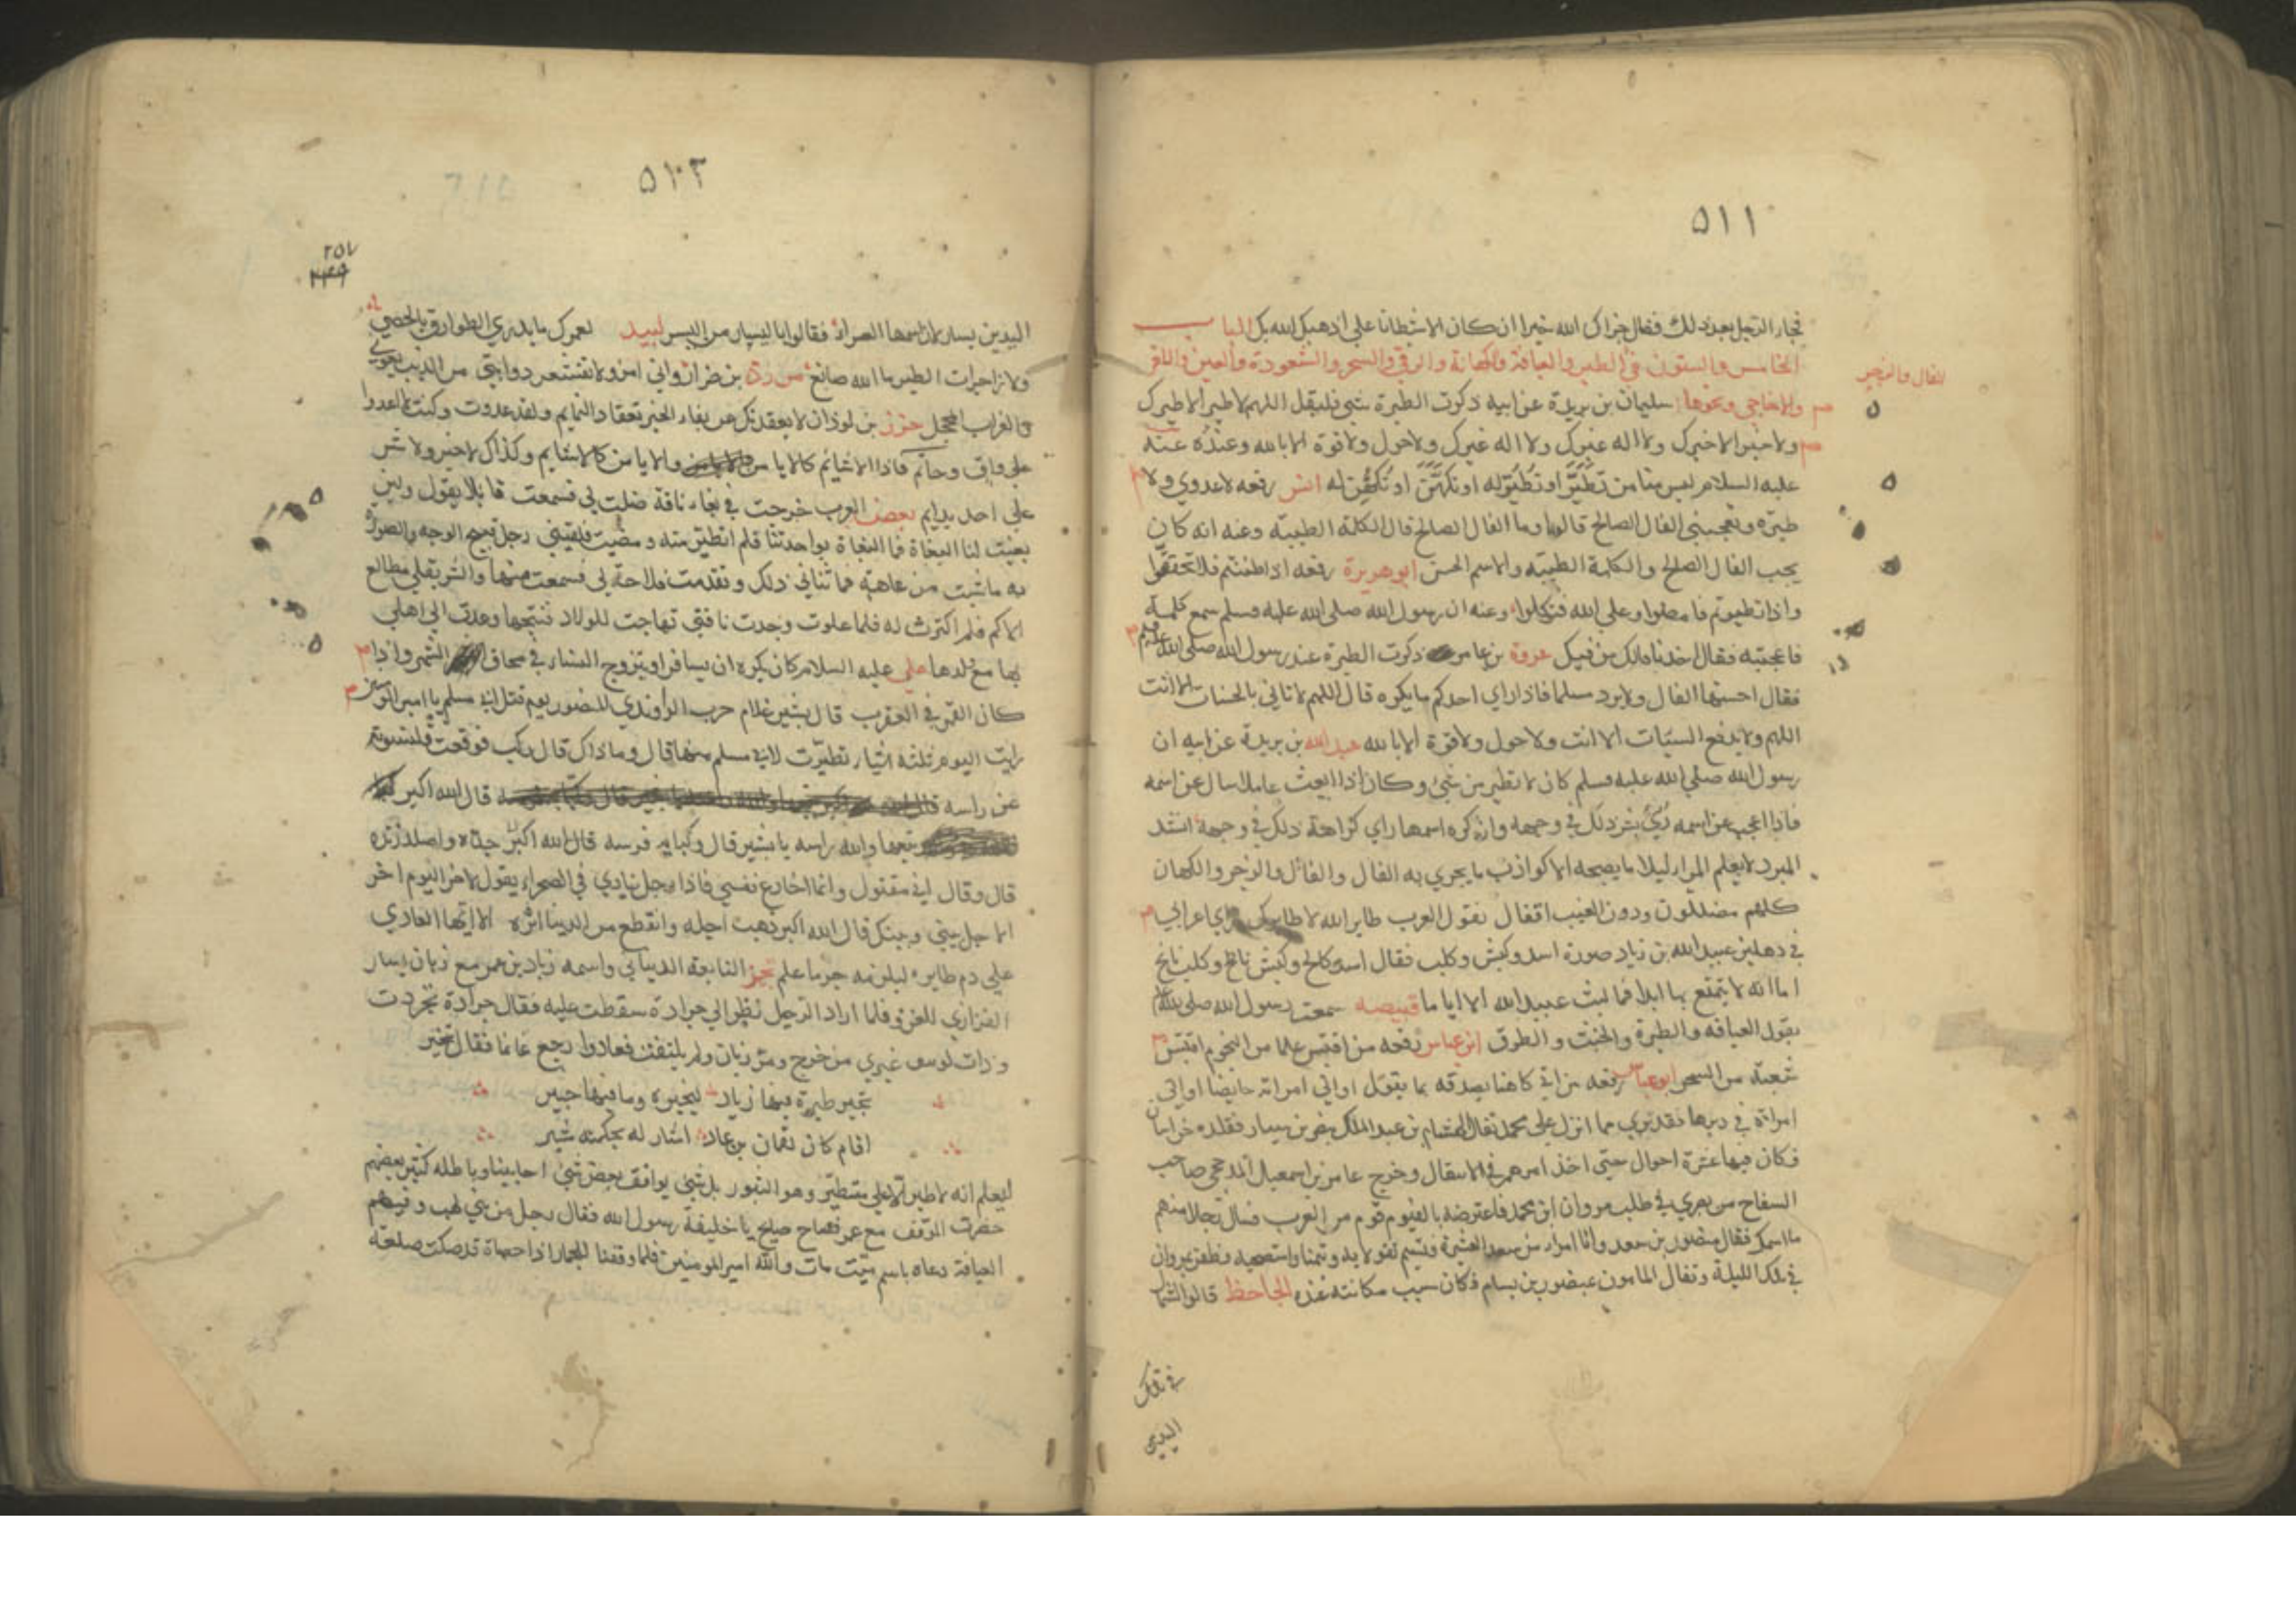 ٥١١
فجاء الرجل بعد ذلك فقال جزاك الله خيرا ان كان الا شيطانا علي اذهبك الله بك الباب
الخامس والستون في الطير والعيافة والكهانة والرقي والسحر والشعوذة والعين واللقي
الفال والزجر
والاحاجي ونحوها سليمان بن بريدة عن ابيه ذكرت الطيرة شي فليقل اللهم لا طير الا طيرك
ولا خير الا خيرك ولا اله غيرك ولا اله غيرك ولا حول ولا قوة الا بالله وعنده عنه
عليه السلام ليس منا من تطير او تطير له او تكهن او تكهن له انس رفعه لا عدوي ولا
طيره ويعجبني الفال الصالح قالوا وما الفال الصالح قال الكلمة الطيبة وعنه انه كان
يحب الفال الصالح والكلمة الطيبه والاسم الحسن ابو هريرة رفعه اذا ظننتم فلا تحققوا
واذا تطيرتم فامضوا وعلي الله فتوكلوا وعنه ان رسول الله صلي الله عليه وسلم سمع كلمة
فاعجبته فقال اخذنا فالك من فيك عروة بن عامر ذكرت الطيرة عند رسول الله صلي الله
فقال احسنها الفال ولا يرد مسلما فاذا راي احدكم ما يكره قال اللهم لا تاتي بالحسنات الا انت
اللهم ولا يدفع السيئات الا انت ولا حول ولا قوة الا بالله عبد الله بن بريدة عن ابيه ان
رسول الله صلي الله عليه وسلم كان لا تطير من شيء وكان اذا ابعث عاملا سال عن اسمه
فاذا اعجب عن اسمه رئي بشر ذلك في وجهه وان كره اسمها راي كراهة ذلك في وجهه انشد
المبرد لا يعلم المرء ليلا ما يصبحه الا كواذب ما يجري به الفال والفال والزجر والكهان
كلهم مضللون ودون الغيب اقفال نقول العرب طاير الله لا طايرك راي اعرابي
في دهليز عبيد الله بن زياد صورة اسد وكبش وكلب فقال اسد كالح وكبش ناطح وكلب نابح
اما انه لا يتمتع بها ابدا فما لبث عبيد الله الا اياما قبيصه سمعت رسول الله صلي الله
يقول العيافه والطيرة والجبت والطرق ابن عباس رفعه من اقتبس علما من النجوم اقتبس
شعبة من السحر رفعه من اتي كاهنا يصدقه بما يقول او اتي امراته حايضا او اتي
امراة في دبرها فقد بري مما انزل علي محمد تفال هشام بن عبد الملك بنصر بن سيار فقلده خراسان
فكان فيها عشرة احوال حتي اخذ امرهم في الاسفال وخرج عامر بن اسمعيل صاحب
السفاح من يجري في طلب مروان ابن محمد فاعترضه بالفيوم قوم من العرب فسال رجلا منهم
ما اسمك فقال منصور بن سعد وانا امرء من سعد العشيرة فتبسم تفولا به وتيمنا واستصحبه وظفر بمروان
في تلك الليلة وتفال المامون بمنصور بن بسام فكان سبب مكانته عنده الجاحظ قالوا
في تلك
اليدين
٥١٢
٢٥٧
اليدين يسار لان اسمها العسراء فقالوا يا اليسار من اليسر لبيد لعمرك ما يدري الطوارق بالحصي
ولا زاجرات الطير ما الله صانع مزرد بن ضرار واني امرؤ لا تقشعر ذوابتي من الذيب يعوي
والغراب المحجل خزز بن لوذان لا يعقدنك عن بغاء الخير تعقاد التمايم ولقد غدوت وكنت لا اغدوا
علي واق وحاتم فاذا الاشايم كالايامن والايامن كالاشايم وكذاك لا خير ولا شر
علي احد بدايم بعض العرب خرجت في بغاء ناقة ضلت لي فسمعت قايلا يقول ولين
بعثت لنا البغاة فما البغاة بواجدتنا فلم اتطير منه ومضيت فلقيني رجل قبيح الوجه والصورة
به ما شيت من عاهة فما ثناني ذلك وتقدمت فلاحت لي فسمعت منها والشر يلقي مطالع
الاكم فلم اكترث له فلما علوت وجدت ناقتي تهاجت للولاد فنتجتها وعدت الي اهلي
بها مع ولدها علي عليه السلام كان يكره ان يسافر او يتزوج النساء في محاق الشهر واذا
كان القمر في العقرب قال بشير غلام حرب الراوندي للمنصور يوم قتل ابي مسلم يا امير المومنين
رايت اليوم ثلثه اشياء تطيرت لابي مسلم منها قال وما ذاك قال ركب فوقعت قلنسوته
عن راسه قال الله اكبر
تبعها والله راسه يا بشير قال وكبا به فرسه قال الله اكبر جده واصلد زنده
قال وقال اني مقتول وانما اخادع نفسي فاذا رجل ينادي في الصحراء يقول لاخر اليوم اخر
الاجل بيني وبينك قال الله اكبر ذهب اجله وانقطع من الدنيا اثره الا ايها الغادي
علي دم طايره ليلزمه جرما علم تجز النابغة الذبياني واسمه زياد بن عمر مع زبان بن سيار
الفزاري للغزو فلما اراد الرحيل نظر الي جرادة سقطت عليه فقال جرادة تجردت
وذات لونين غيري من خرج ومر زبان ولم يلتفت فعادوا رجع غانما فقال
تخبر طيرة فيها زياد لتخبره وما فيها خبير
اقام كان لقمان بن عاد اشار له بحكمته مشير
ليعلم انه لا طير الا علي متطير وهو الثبور بل شيئ يوافق بعض شيئ احايينا وباطله كثير بعضهم
حضرت الوقف مع عمر فصاح صايح يا خليفة رسول الله فقال رجل من بني لهب وفيهم
العيافة دعاه باسم ميت مات والله امير المومنين فلما وقفنا للجمار اذا حصاة قد صكت صلعة